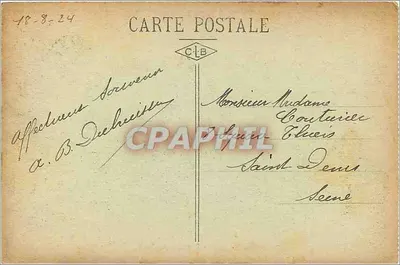 18-8-24
CARTE POSTALE
CLB
Affectueux Souvenir
a. B. Dubuisson
Monsieur Madame
Couturier
Thiers
Saint Denis
Seine
CPAPHIL